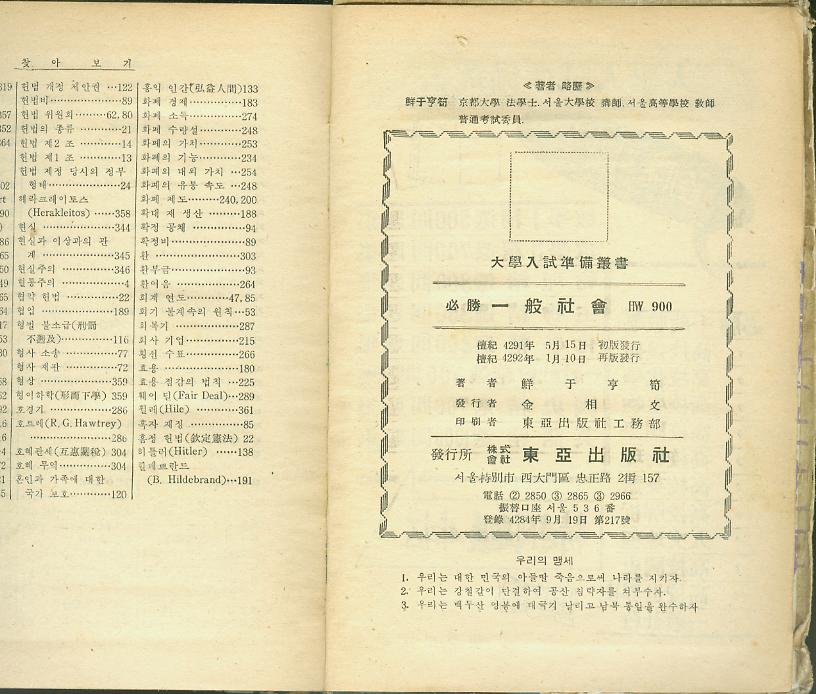 찾 아 보 기
319
357
352
364
02
rt
90
)
86
65
50
49
65
34
17
53
80
58
92
16
6
-4
72
21
-5
헌법 개정 치안권 …122
헌법비 …89
헌법 위원회 …62.80
헌법의 종류 …21
헌법 제2 조 …14
헌법 제1 조 …13
헌법 제정 당시의 정부
형태 …24
헤라크레이토스
(Herakleitos) …358
현실 …344
현실과 이상과의 관
계 …345
현실주의 …346
혈통주의 …4
협약 헌법 …22
협업 …189
형벌 불소급(刑罰
不遡及) …116
형사 소송 …77
형사 재판 …72
형상 …359
형이하학(形而下學) 359
호경기 …286
호트레(R.G. Hawtrey)
…286
호혜관세(互惠關稅) 304
호혜 무역 …304
혼인과 가족에 대한
국가 보호 …120
홍익 인간(弘益人間)133
화폐 경제 …183
화폐 소득 …274
화폐 수량설 …248
화폐의 가치 …253
화폐의 기능 …234
화폐의 대외 가치 …254
화폐의 유통 속도 …248
화폐 제도 …240,200
확대 재 생산 …188
확정 공채 …94
확정비 …89
환 …303
환부금 …93
환어음 …264
회계 연도 …47.85
회기 불계속의 원칙…53
회복기 …287
회사 기업 …215
횡선 수표 …266
효용 …180
효용 점감의 법칙 …225
훼어 딜(Fair Deal) …289
힐레(Hile) …361
흑자 재정 …85
흠정 헌법(欽定憲法) 22
히틀러(Hitler) …138
힐데브란드
(B. Hildebrand)…191
≪著者 略歷≫
鮮于亨筍 京都大學 法學士. 서울大學校 講師. 서울高等學校 敎師
普通考試委員.
大學入試準備叢書
必勝 一般社會 HW 900
檀紀 4291年 5月 15日 初版發行
檀紀 4292年 1月 10日 再版發行
著者 鮮于亨筍
發行者 金相文
印刷者 東亞出版社工務部
發行所 株式會社 東亞出版社
서울特別市 西大門區 忠正路 2街 157
電話 ② 2850 ③ 2865 ③ 2966
振替口座 서울 5 3 6 番
登錄 4284年 9月 19日 第217號
우리의 맹세
1. 우리는 대한 민국의 아들딸 죽음으로써 나라를 지키자.
2. 우리는 강철같이 단결하여 공산 침략자를 쳐부수자.
3. 우리는 백두산 영봉에 태극기 날리고 남북 통일을 완수하자